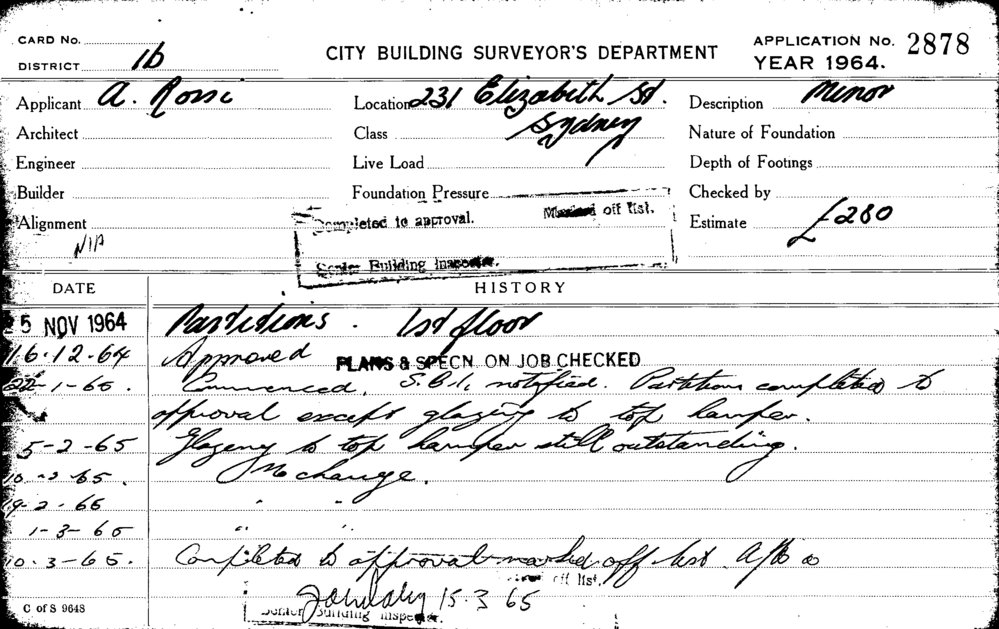 CARD No.
DISTRICT 1b
CITY BUILDING SURVEYOR'S DEPARTMENT
APPLICATION No. 2878
YEAR 1964.
Applicant A. Rossi
Location 231 Elizabeth St.
Sydney
Description Minor
Architect
Class
Nature of Foundation
Engineer
Live Load
Depth of Footings
Builder
Foundation Pressure
Checked by
Alignment
N/A
Completed to approval. Marked off list.
Senior Building Inspector.
Estimate £280
DATE HISTORY
5 NOV 1964 Partitions. 1st floor
16.12.64 Approved
PLANS & SPECN. ON JOB CHECKED
22-1-65. Commenced. notified. Partitions completed to
approval except glazing to top hamper.
5-2-65 Glazing to top hamper still outstanding.
10-2-65. No change.
19-2-65 " "
1-3-65 " "
10.3-65. Completed to approval marked off list
off list.
15.3.65
Senior Building Inspector.
C of S 9648